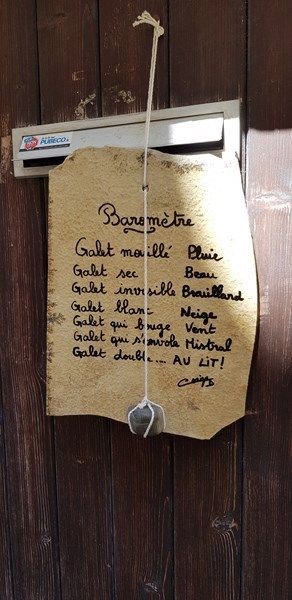 PUBECO
Baromètre
Galet mouillé Pluie
Galet sec Beau
Galet invisible Brouillard
Galet blanc Neige
Galet qui bouge Vent
Galet qui s'envole Mistral
Galet double... AU LIT!